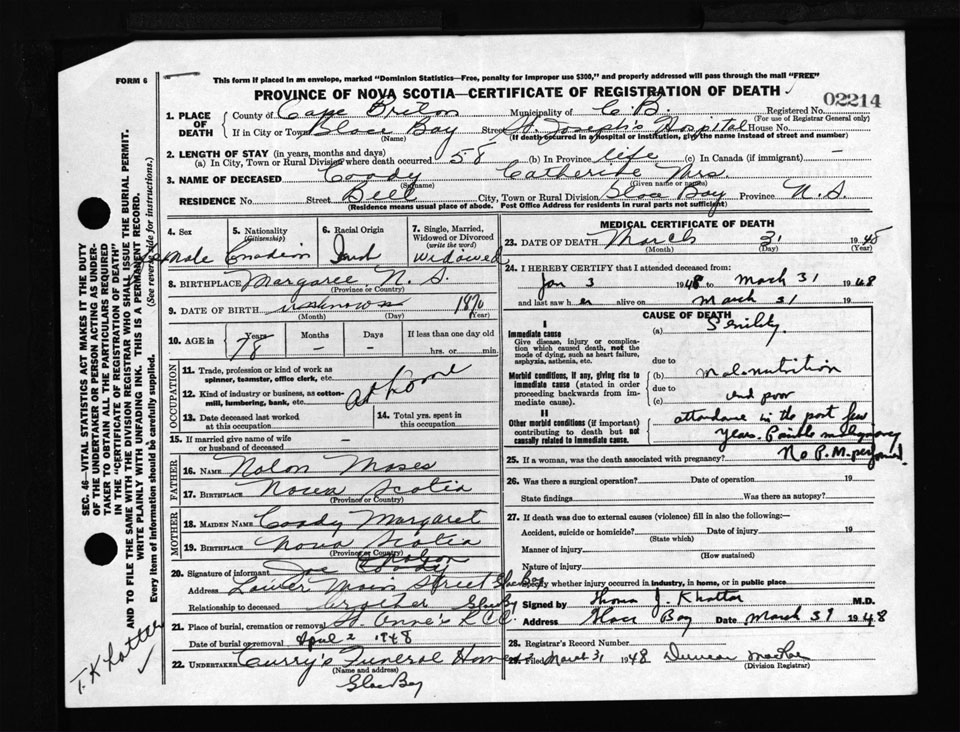 FORM 6
This form if placed in an envelope, marked "Dominion Statistics—Free, penalty for improper use $300," and properly addressed will pass through the mail "FREE"
PROVINCE OF NOVA SCOTIA—CERTIFICATE OF REGISTRATION OF DEATH
02214
1. PLACE OF DEATH
County of Cape Briton Municipality of C. B. Registered No.
(For use of Registrar General only)
If in City or Town Glace Bay Street St. Joseph's Hospital House No.
(Name) (If death occurred in a hospital or institution, give the name instead of street and number)
2. LENGTH OF STAY (in years, months and days)
(a) In City, Town or Rural Division where death occurred 58 (b) In Province life (c) In Canada (if immigrant) —
3. NAME OF DECEASED Coady Catherine Mrs.
(Surname) (Given name or names)
RESIDENCE No. Street Bell City, Town or Rural Division Glace Bay Province N. S.
(Residence means usual place of abode. Post Office Address for residents in rural parts not sufficient)
4. Sex
Female
5. Nationality (Citizenship)
Canadian
6. Racial Origin
7. Single, Married, Widowed or Divorced (write the word)
widowed
8. BIRTHPLACE Margaree N. S.
(Province or Country)
9. DATE OF BIRTH unknown 1870
(Month) (Day) (Year)
10. AGE in Years Months Days If less than one day old
78 — — hrs. or min.
OCCUPATION
11. Trade, profession or kind of work as spinner, teamster, office clerk, etc.
at home
12. Kind of industry or business, as cotton-mill, lumbering, bank, etc.
13. Date deceased last worked at this occupation
14. Total yrs. spent in this occupation
15. If married give name of wife or husband of deceased —
FATHER
16. NAME Nolon Moses
17. BIRTHPLACE Nova Scotia
(Province or Country)
MOTHER
18. MAIDEN NAME Coady Margaret
19. BIRTHPLACE Nova Scotia
(Province or Country)
20. Signature of informant Joe Coady
Address Lower Main Street Glace Bay
Relationship to deceased brother Glace Bay
21. Place of burial, cremation or removal St. Anne's R.C.C.
Date of burial or removal April 2 1948
22. UNDERTAKER Curry's Funeral Home
(Name and address)
Glace Bay
MEDICAL CERTIFICATE OF DEATH
23. DATE OF DEATH March 31 1948
(Month) (Day) (Year)
24. I HEREBY CERTIFY that I attended deceased from:
Jan 3 1948 to March 31 1948
and last saw her alive on March 31 19
CAUSE OF DEATH
I
Immediate cause
Give disease, injury or complication which caused death, not the mode of dying, such as heart failure, asphyxia, asthenia, etc.
(a) Senility
due to
Morbid conditions, if any, giving rise to immediate cause (stated in order proceeding backwards from immediate cause).
(b) Malnutrition
due to
(c) and poor
II
Other morbid conditions (if important) contributing to death but not causally related to immediate cause.
attendance in the past few
years. Possible malignancy
No P. M. performed.
25. If a woman, was the death associated with pregnancy?
26. Was there a surgical operation? Date of operation 19
State findings Was there an autopsy?
27. If death was due to external causes (violence) fill in also the following:—
Accident, suicide or homicide? Date of injury 19
(State which)
Manner of injury
(How sustained)
Nature of injury
Specify whether injury occurred in industry, in home, or in public place
Signed by Thomas J. Khattar M.D.
Address Glace Bay Date March 31 1948
28. Registrar's Record Number
29. Filed March 31 1948 Duncan MacRae
(Division Registrar)
SEC. 46—VITAL STATISTICS ACT MAKES IT THE DUTY
OF THE UNDERTAKER OR PERSON ACTING AS UNDER-
TAKER TO OBTAIN ALL THE PARTICULARS REQUIRED
IN THE "CERTIFICATE OF REGISTRATION OF DEATH"
AND TO FILE THE SAME WITH THE DIVISION REGISTRAR WHO SHALL ISSUE THE BURIAL PERMIT.
WRITE PLAINLY WITH UNFADING INK. THIS IS A PERMANENT RECORD.
Every item of information should be carefully supplied. (See reverse side for instructions.)
T. Khattar